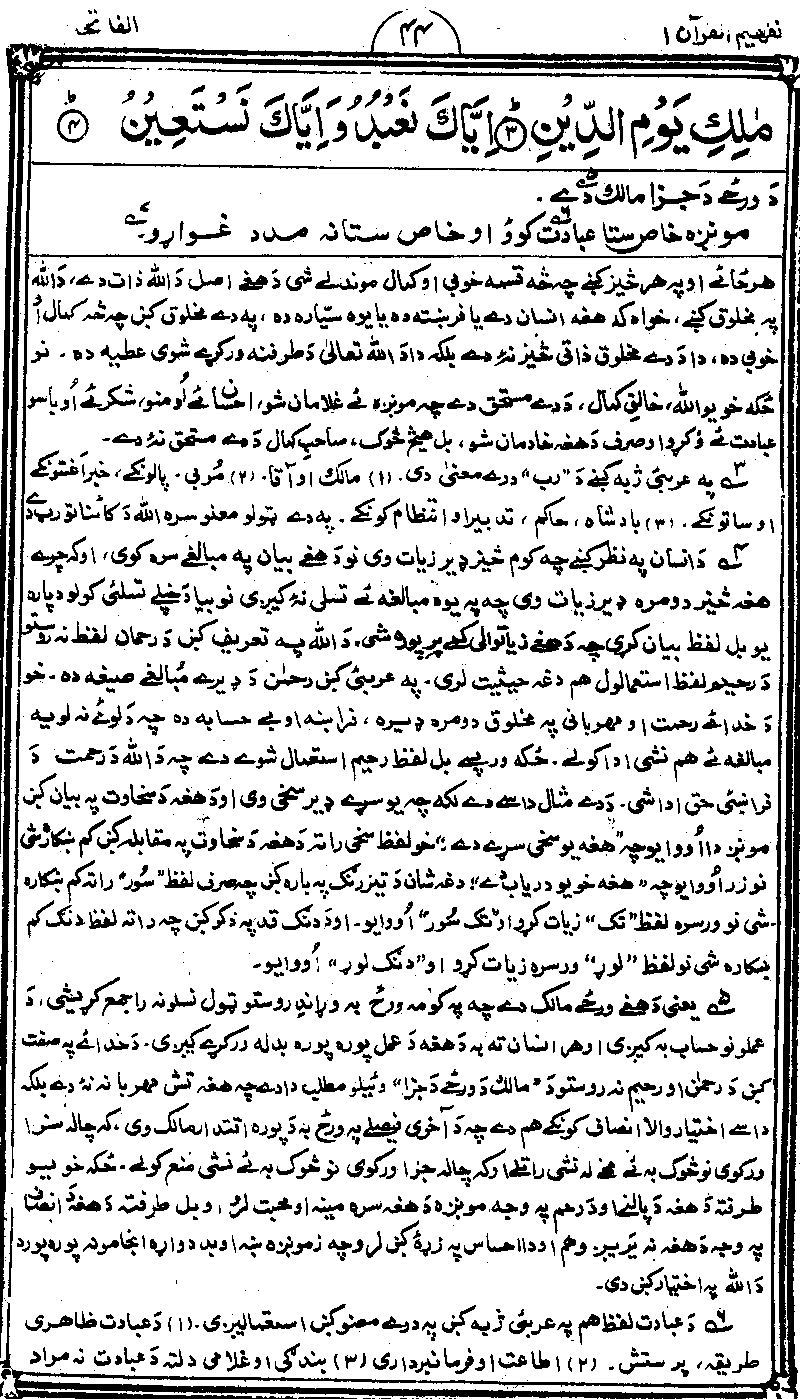 تفهیم القرآن ۱
۴۴
الفاتحی
مٰلِكِ يَوْمِ الدِّيْنِ ۳ اِيَّاكَ نَعْبُدُ وَاِيَّاكَ نَسْتَعِيْنُ ۴
دَ ورځے دَ جزا مالک دے ۵.
مونږه خاص ستا عبادت ۶ کوو او خاص ستا نه مدد غواړو ۷.
هر ځائے او په هر څیز کښے چه څه قسمه خوبی او کمال موندلے شی دَ هغے اصل دَ الله ذات دے، دَ الله
په مخلوق کښے، خواه که هغه انسان دے یا فرښته وه یا یوه سیّاره ده، په دے مخلوق کښ چه څه کمال اُ
خوبی ده، دا دَ دے مخلوق ذاتی څیز نۀ دے بلکه دا دَ الله تعالیٰ دَ طرفنه ورکړے شوی عطیه ده. نو
ځکه خو یو الله، خالقِ کمال، دَ دے مستحق دے چه مونږه ئے غلامان شو، احسان ئے اُومنو، شکر ئے اُوباسو
عبادت ئے وُکړو او صرف دَ هغه خادمان شو، بل هیڅ څوک، صاحبِ کمال دَ دے مستحق نۀ دے.
۳ په عربئ ژبه کښے دَ "رب" درے معنیٰ دی. (۱) مالک او آقا. (۲) مُربی. پالونکے، خبر اغستونکے
او ساتونکے. (۳) بادشاه، حاکم، تدبیر او انتظام کونکے. په دے ټولو معنو سره الله دَ کائناتو رب دے
۴ دَ انسان په نظر کښے چه کوم څیز ډیر زیات وی نو دَ هغے بیان په مبالغے سره کوی، او که چرے
هغه څیز دومره ډیر زیات وی چه په یوه مبالغه ئے تسلی نۀ کیږی نو بیا دَ خپلے تسلئ کولو دپاره
یو بل لفظ بیان کړی چه دَ هغے زیاتوالی کمے پرے پوره شی. دَ الله په تعریف کښ دَ رحمان لفظ نه روستو
دَ رحیم لفظ استعمالول هم دغه حیثیت لری. په عربئ کښ رحمٰن دَ ډیرے مُبالغے صیغه ده. خو
دَ خدائے رحمت او مهربانی په مخلوق دومره ډیره، فراینه او بے حسابه ده چه دَ لوئے نه لویه
مبالغه ئے هم نشی ادا کولے. ځکه ورپسے بل لفظ رحیم استعمال شوے دے چه دَ الله دَ رحمت دَ
فراینئ حق ادا شی. دَ دے مثال داسے دے لکه چه یو سړے ډیر سخی وی او دَ هغه دَ سخاوت په بیان کښ
مونږ دا اُووایو چه "هغه یو سخی سړے دے"؛ خو لفظ سخی راته دَ هغه دَ سخاوت په مقابله کښ کم ښکاره شی
نو زر اُووایو چه "هغه خو یو دریاب دے"؛ دغه شان دَ تیز رنګ په باره کښ چه صرف لفظ "سُور" راته کم ښکاره
شی نو ورسره لفظ "تک" زیات کړو او "تک سُور" اُووایو. او دَ دنګ قد په ذکر کښ چه راته لفظ دنګ کم
ښکاره شی نو لفظ "لوړ" ورسره زیات کړو او "دنګ لوړ" اُووایو.
۵ یعنی دَ هغے ورځے مالک دے چه په کومه ورځ به وړاندِ روستو ټول نسلونه راجمع کړیشی، دَ
عملونو حساب به کیږی او هر انسان ته به دَ هغه دَ عمل پوره پوره بدله ورکړے کیږی. دَ خدائے په صفت
کښ دَ رحمٰن او رحیم نه روستو دَ "مالک دَ ورځے دَ جزا" وئیلو مطلب دا دے چه هغه تش مهربانه نۀ دے بلکه
داسے اختیار والا انصاف کونکے هم دے چه دَ آخری فیصلے په ورځ به دَ پوره اقتدار مالک وی، که چاله سزا
ورکوی نو څوک به ئے مخے له نشی راتلے او که چاله جزا ورکوی نو څوک به ئے نشی منع کولے. ځکه خو یو
طرفته دَ هغه دَ پالنے او دَ رحم په وجه مونږه دَ هغه سره مینه او محبت لرو او بل طرفته دَ هغه دَ انصاف
په وجه دَ هغه نه یَریږو. وهم او دا احساس په زړۀ کښ لرو چه زمونږه ښه او بد دواړه انجامونه پوره پوره
دَ الله په اختیار کښ دی.
۶ دَ عبادت لفظ هم په عربئ ژبه کښ په درے معنو کښ استعمالیږی. (۱) دَ عبادت ظاهری
طریقه، پرستش. (۲) اطاعت او فرمانبرداری (۳) بندګی او غلامی دلته دَ عبادت نه مراد